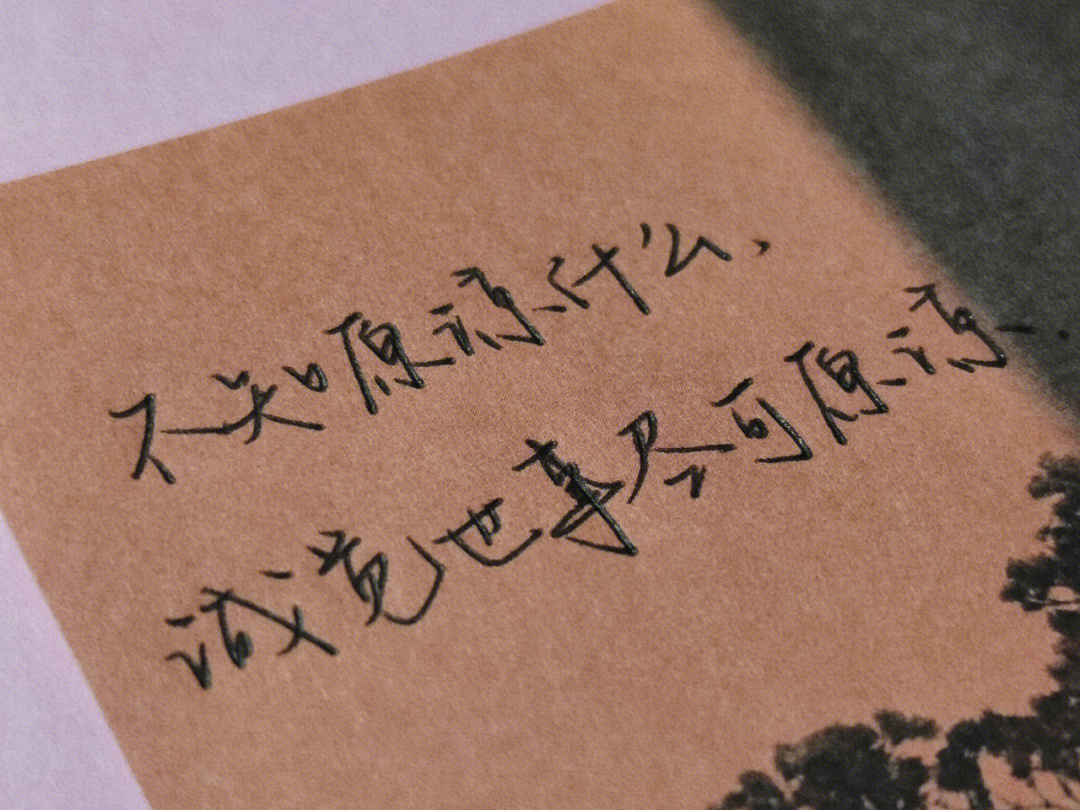 不知原谅什么，
诚觉世事尽可原谅。